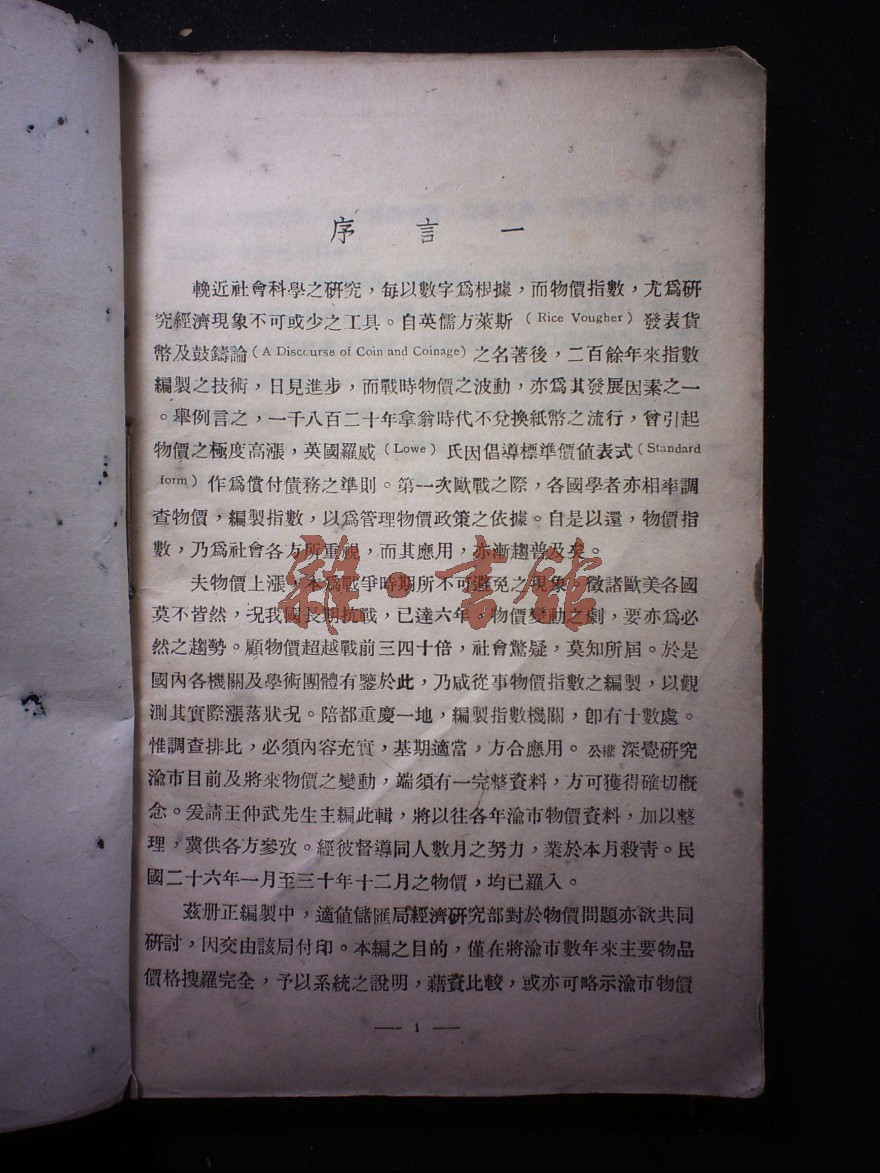 序言一
輓近社會科學之研究，每以數字爲根據，而物價指數，尤爲研
究經濟現象不可或少之工具。自英儒方萊斯（Rice Vougher）發表貨
幣及鼓鑄論（A Discourse of Coin and Coinage）之名著後，二百餘年來指數
編製之技術，日見進步，而戰時物價之波動，亦爲其發展因素之一
。舉例言之，一千八百二十年拿翁時代不兌換紙幣之流行，曾引起
物價之極度高漲，英國羅威（Lowe）氏因倡導標準價値表式（Standard
form）作爲償付債務之準則。第一次歐戰之際，各國學者亦相率調
查物價，編製指數，以爲管理物價政策之依據。自是以還，物價指
數，乃爲社會各方所重視，而其應用，亦漸趨普及矣。
夫物價上漲，本爲戰爭時期所不可避免之現象。徵諸歐美各國
莫不皆然，況我國長期抗戰，已達六年。物價變動之劇，要亦爲必
然之趨勢。顧物價超越戰前三四十倍，社會驚疑，莫知所屆。於是
國內各機關及學術團體有鑒於此，乃咸從事物價指數之編製，以觀
測其實際漲落狀況。陪都重慶一地，編製指數機關，卽有十數處。
惟調查排比，必須內容充實，基期適當，方合應用。公權深覺研究
渝市目前及將來物價之變動，端須有一完整資料，方可獲得確切概
念。爰請王仲武先生主編此輯，將以往各年渝市物價資料，加以整
理，冀供各方參攷。經彼督導同人數月之努力，業於本月殺靑。民
國二十六年一月至三十年十二月之物價，均已羅入。
茲册正編製中，適値儲匯局經濟研究部對於物價問題亦欲共同
研討，因交由該局付印。本編之目的，僅在將渝市數年來主要物品
價格搜羅完全，予以系統之說明，藉資比較，或亦可略示渝市物價
— 1 —
雜·書館